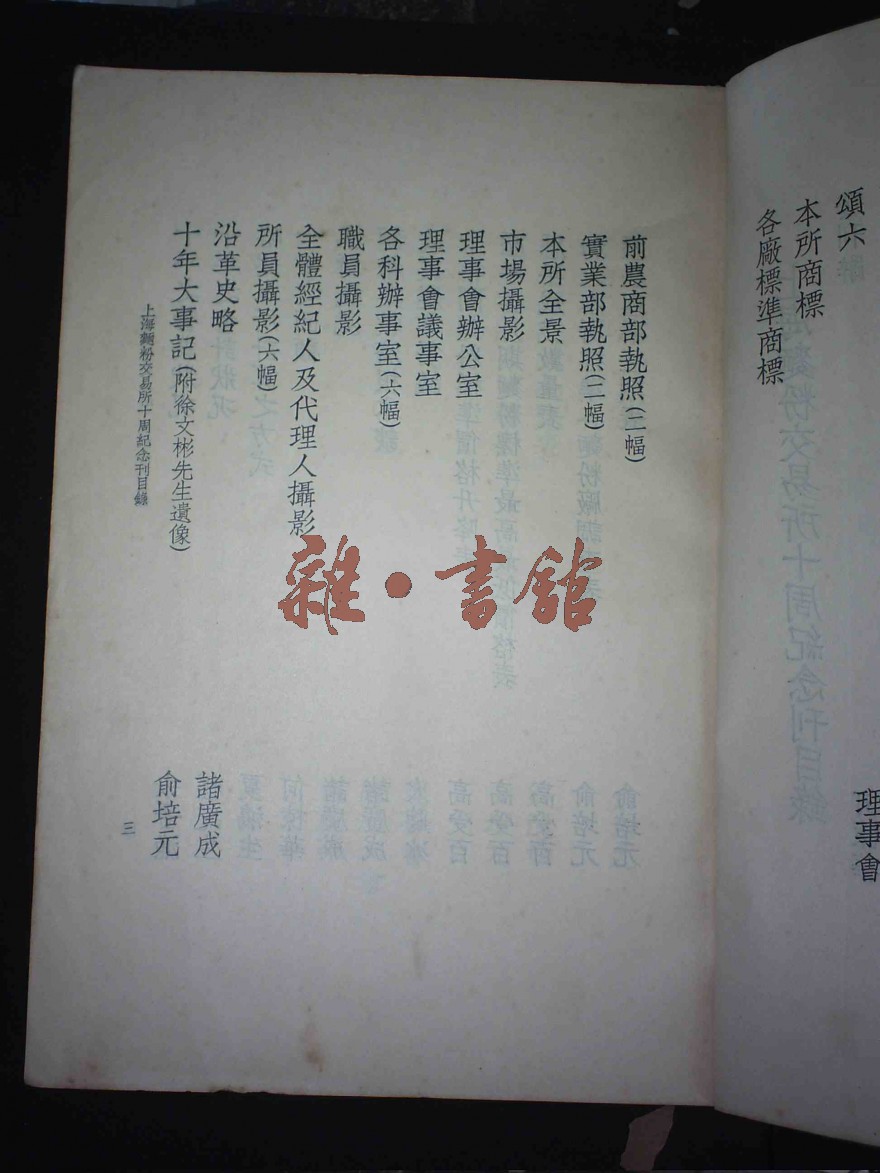 頌六
本所商標
各廠標準商標
理事會
前農商部執照(二幅)
實業部執照(二幅)
本所全景
市場攝影
理事會辦公室
理事會議事室
各科辦事室(六幅)
職員攝影
全體經紀人及代理人攝影
所員攝影(六幅)
沿革史略
諸廣成
十年大事記(附徐文彬先生遺像)
俞培元
上海麵粉交易所十周紀念刊目錄
三
雜·書館